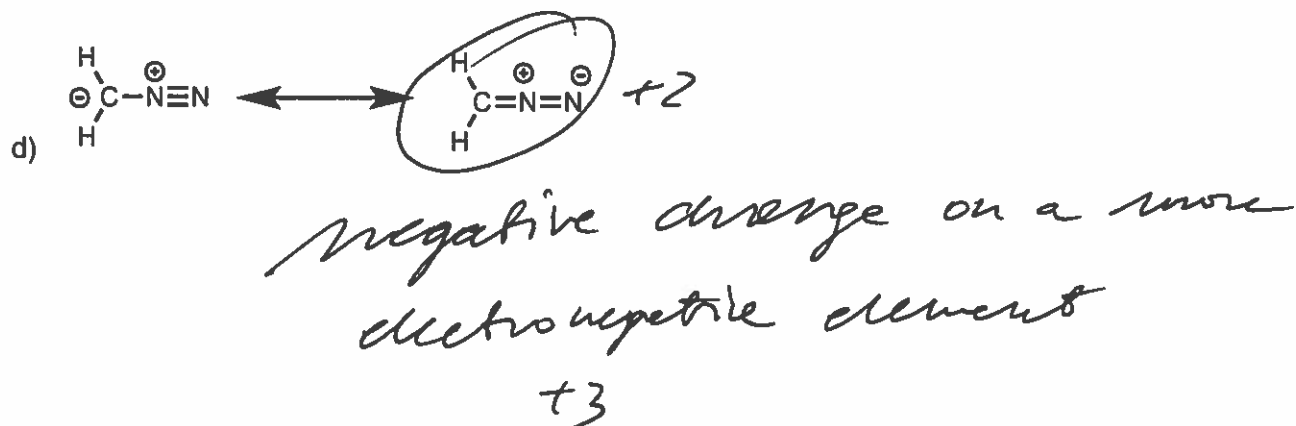 H H
⊖ C–N≡N ⊕ ⟷ C=N=N ⊕ ⊖ +2
H H
d)
negative charge on a more
electronegative element
+3